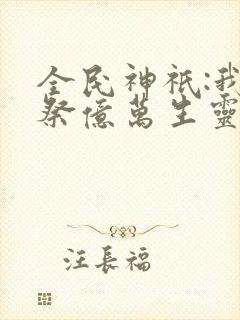 全民神祇:我
祭億萬生靈
汪長福